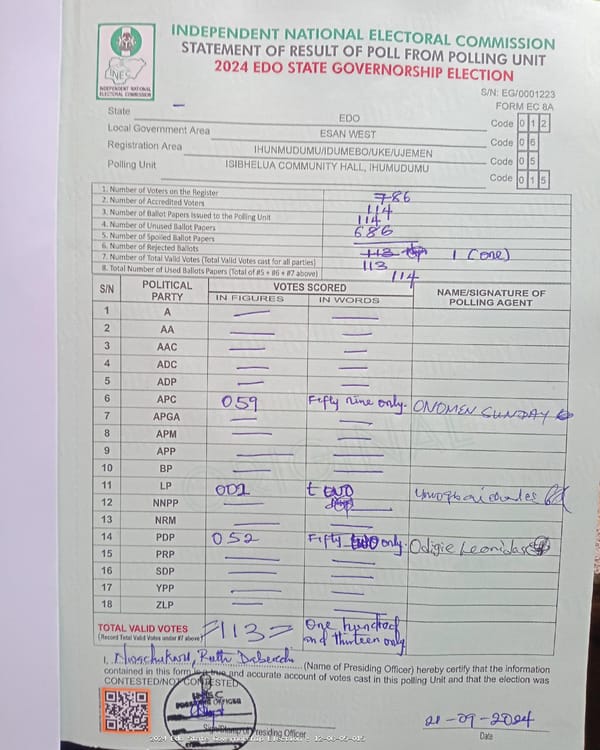 INDEPENDENT NATIONAL ELECTORAL COMMISSION
STATEMENT OF RESULT OF POLL FROM POLLING UNIT
2024 EDO STATE GOVERNORSHIP ELECTION
INEC
INDEPENDENT NATIONAL
ELECTORAL COMMISSION
S/N: EG/0001223
FORM EC 8A
State EDO Code 0 1 2
Local Government Area ESAN WEST Code 0 6
Registration Area IHUNMUDUMU/IDUMEBO/UKE/UJEMEN Code 0 5
Polling Unit ISIBHELUA COMMUNITY HALL, IHUMUDUMU Code 0 1 5
1. Number of Voters on the Register 786
2. Number of Accredited Voters 114
3. Number of Ballot Papers Issued to the Polling Unit 114
4. Number of Unused Ballot Papers 686
5. Number of Spoiled Ballot Papers
6. Number of Rejected Ballots 113 1 (one)
7. Number of Total Valid Votes (Total Valid Votes cast for all parties) 113
8. Total Number of Used Ballots Papers (Total of #5 + #6 + #7 above) 114
S/N POLITICAL PARTY VOTES SCORED NAME/SIGNATURE OF POLLING AGENT
IN FIGURES IN WORDS
1 A
2 AA
3 AAC
4 ADC
5 ADP
6 APC 059 Fifty nine only. ONOMEN SUNDAY
7 APGA
8 APM
9 APP
10 BP
11 LP 002 two
12 NNPP
13 NRM
14 PDP 052 Fifty two only. Odigie Leonidas
15 PRP
16 SDP
17 YPP
18 ZLP
TOTAL VALID VOTES =113= One hundred
(Record Total Valid Votes under #7 above) and thirteen only
I, (Name of Presiding Officer) hereby certify that the information
contained in this form is a true and accurate account of votes cast in this polling Unit and that the election was
CONTESTED/NOT CONTESTED
INEC
PRESIDING OFFICER
Sign/Stamp of Presiding Officer
21-09-2024
Date